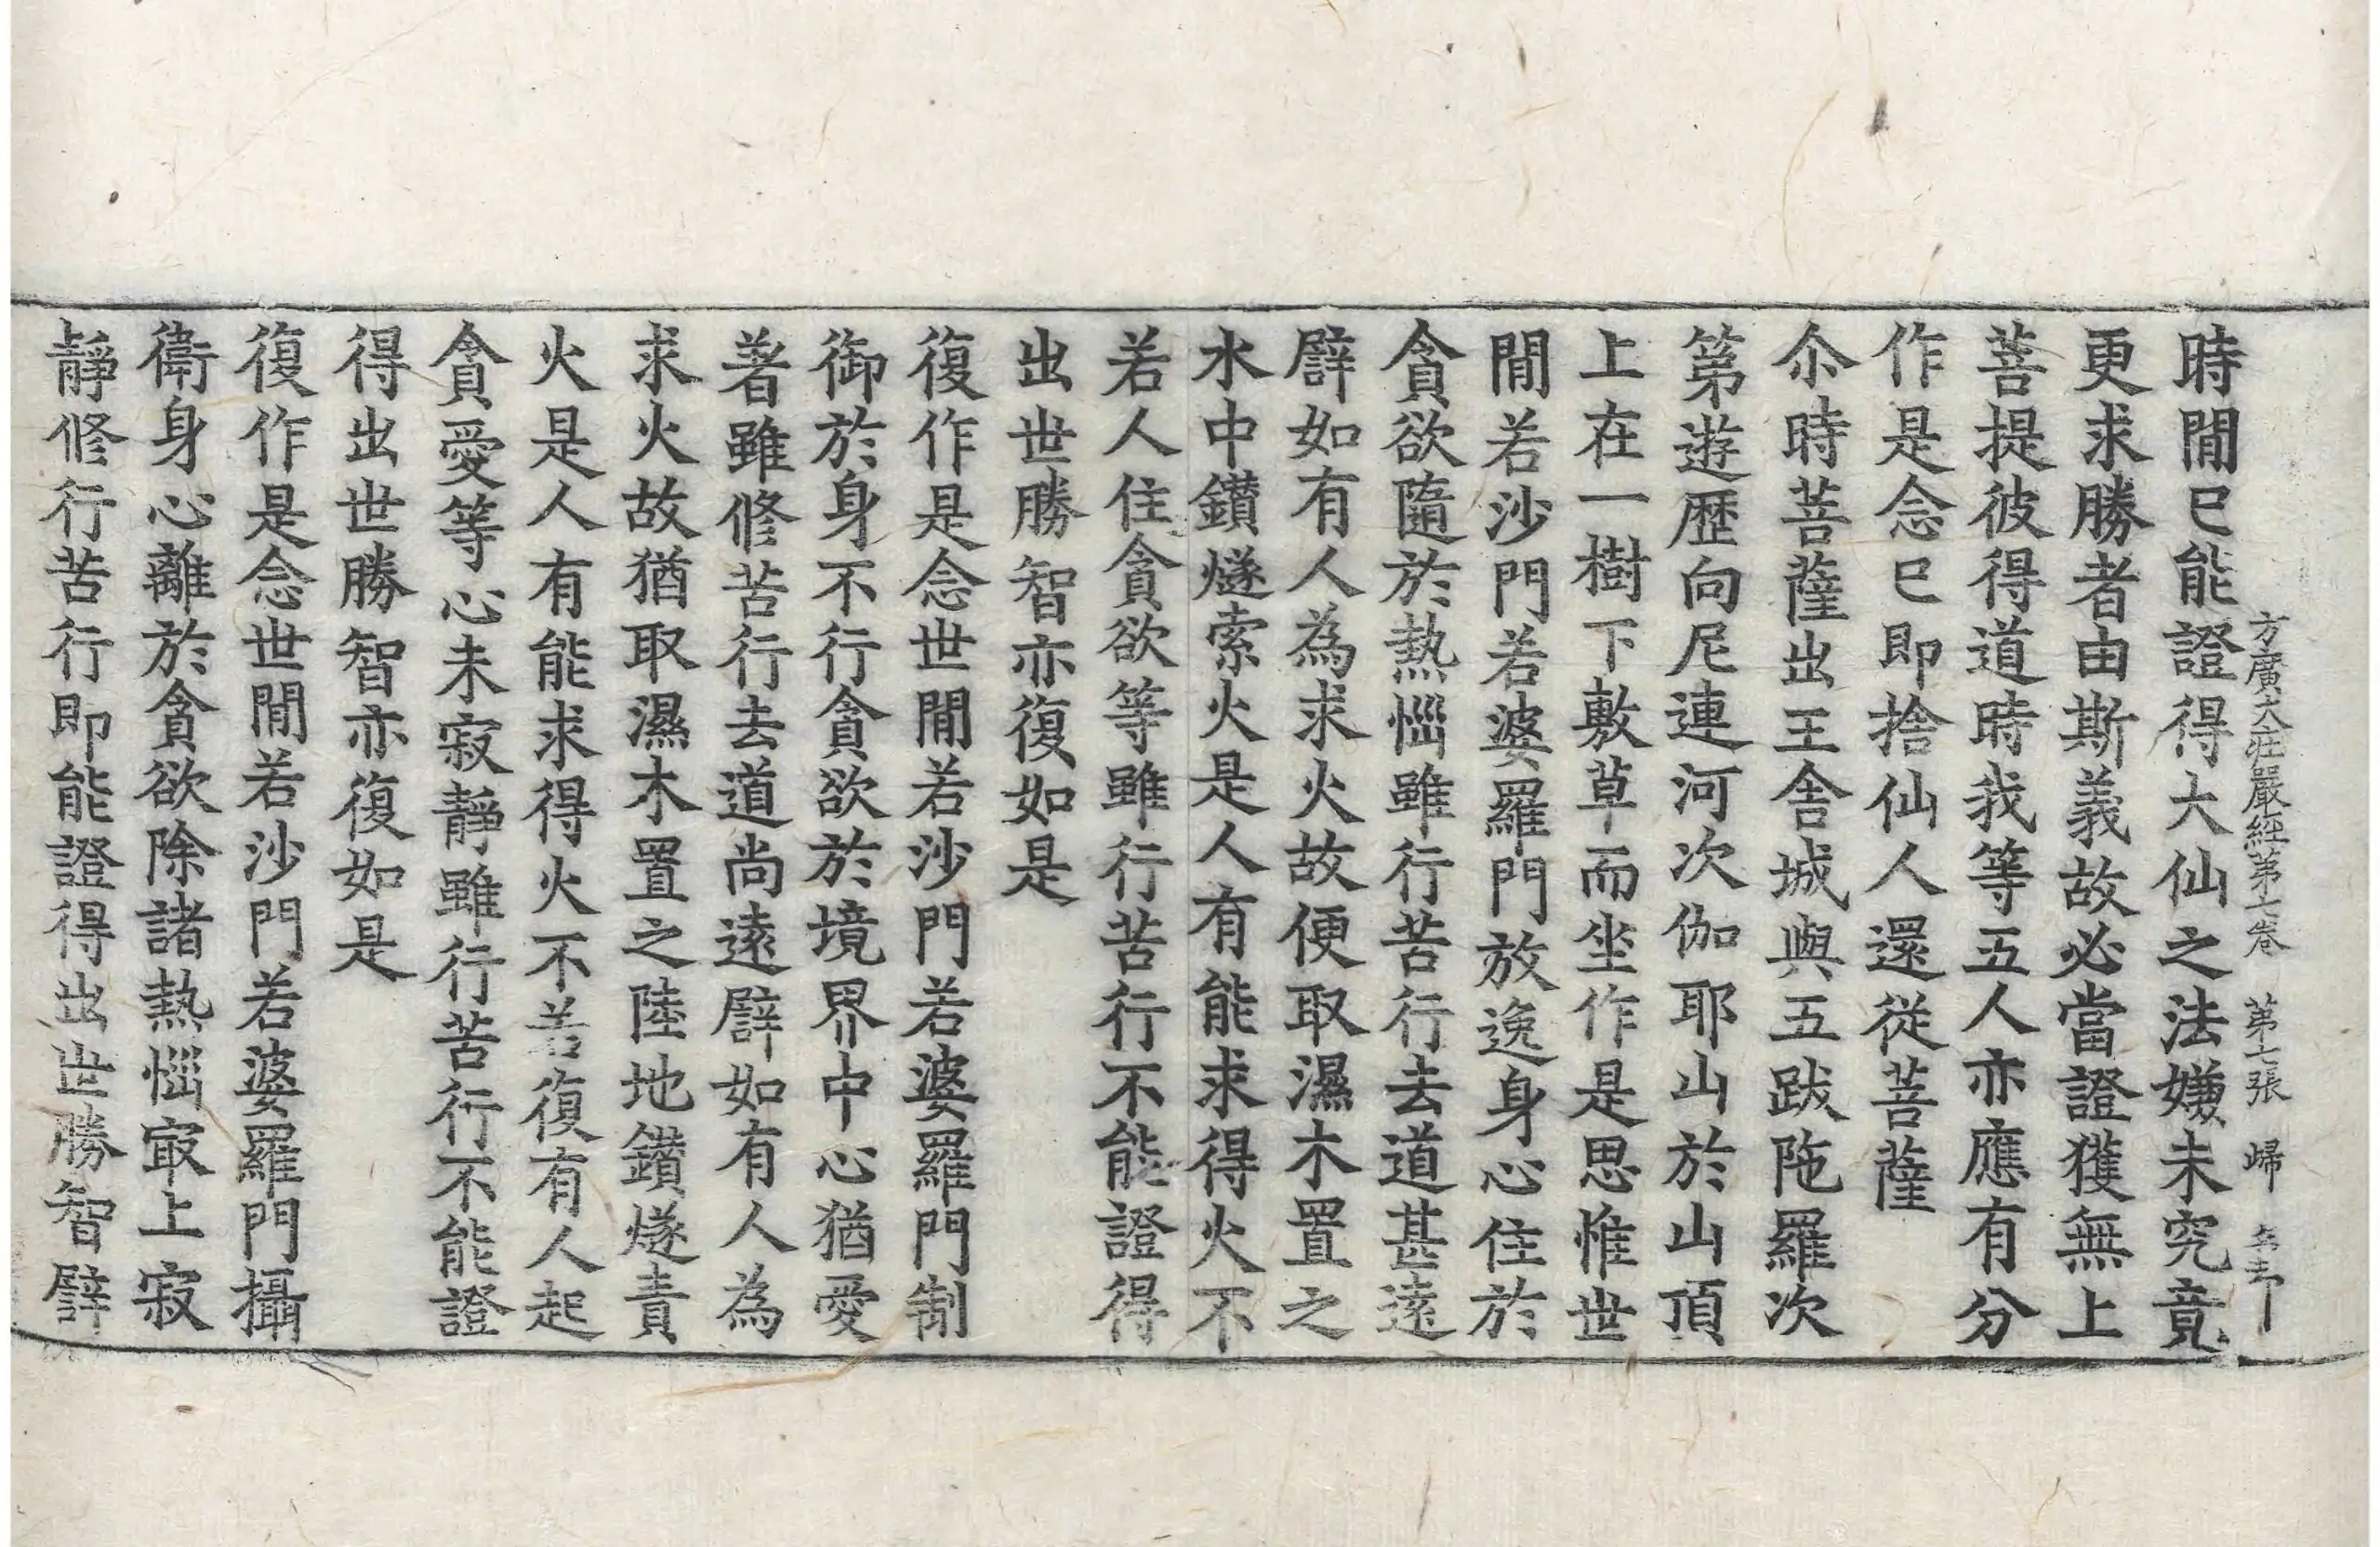 方廣大莊嚴經第七卷 第七張 歸
時閒已能證得大仙之法嫌未究竟
更求勝者由斯義故必當證獲無上
菩提彼得道時我等五人亦應有分
作是念已即捨仙人還從菩薩
尒時菩薩出王舍城與五跋陁羅次
第遊歷向尼連河次伽耶山於山頂
上在一樹下敷草而坐作是思惟世
閒若沙門若婆羅門放逸身心住於
貪欲隨於熱惱雖行苦行去道甚遠
譬如有人為求火故便取濕木置之
水中鑽燧索火是人有能求得火不
若人住貪欲等雖行苦行不能證得
出世勝智亦復如是
復作是念世閒若沙門若婆羅門制
御於身不行貪欲於境界中心猶愛
著雖修苦行去道尚遠譬如有人為
求火故猶取濕木置之陸地鑽燧責
火是人有能求得火不若復有人起
貪愛等心未寂靜雖行苦行不能證
得出世勝智亦復如是
復作是念世閒若沙門若婆羅門攝
衛身心離於貪欲除諸熱惱㝡上寂
靜修行苦行即能證得出世勝智譬